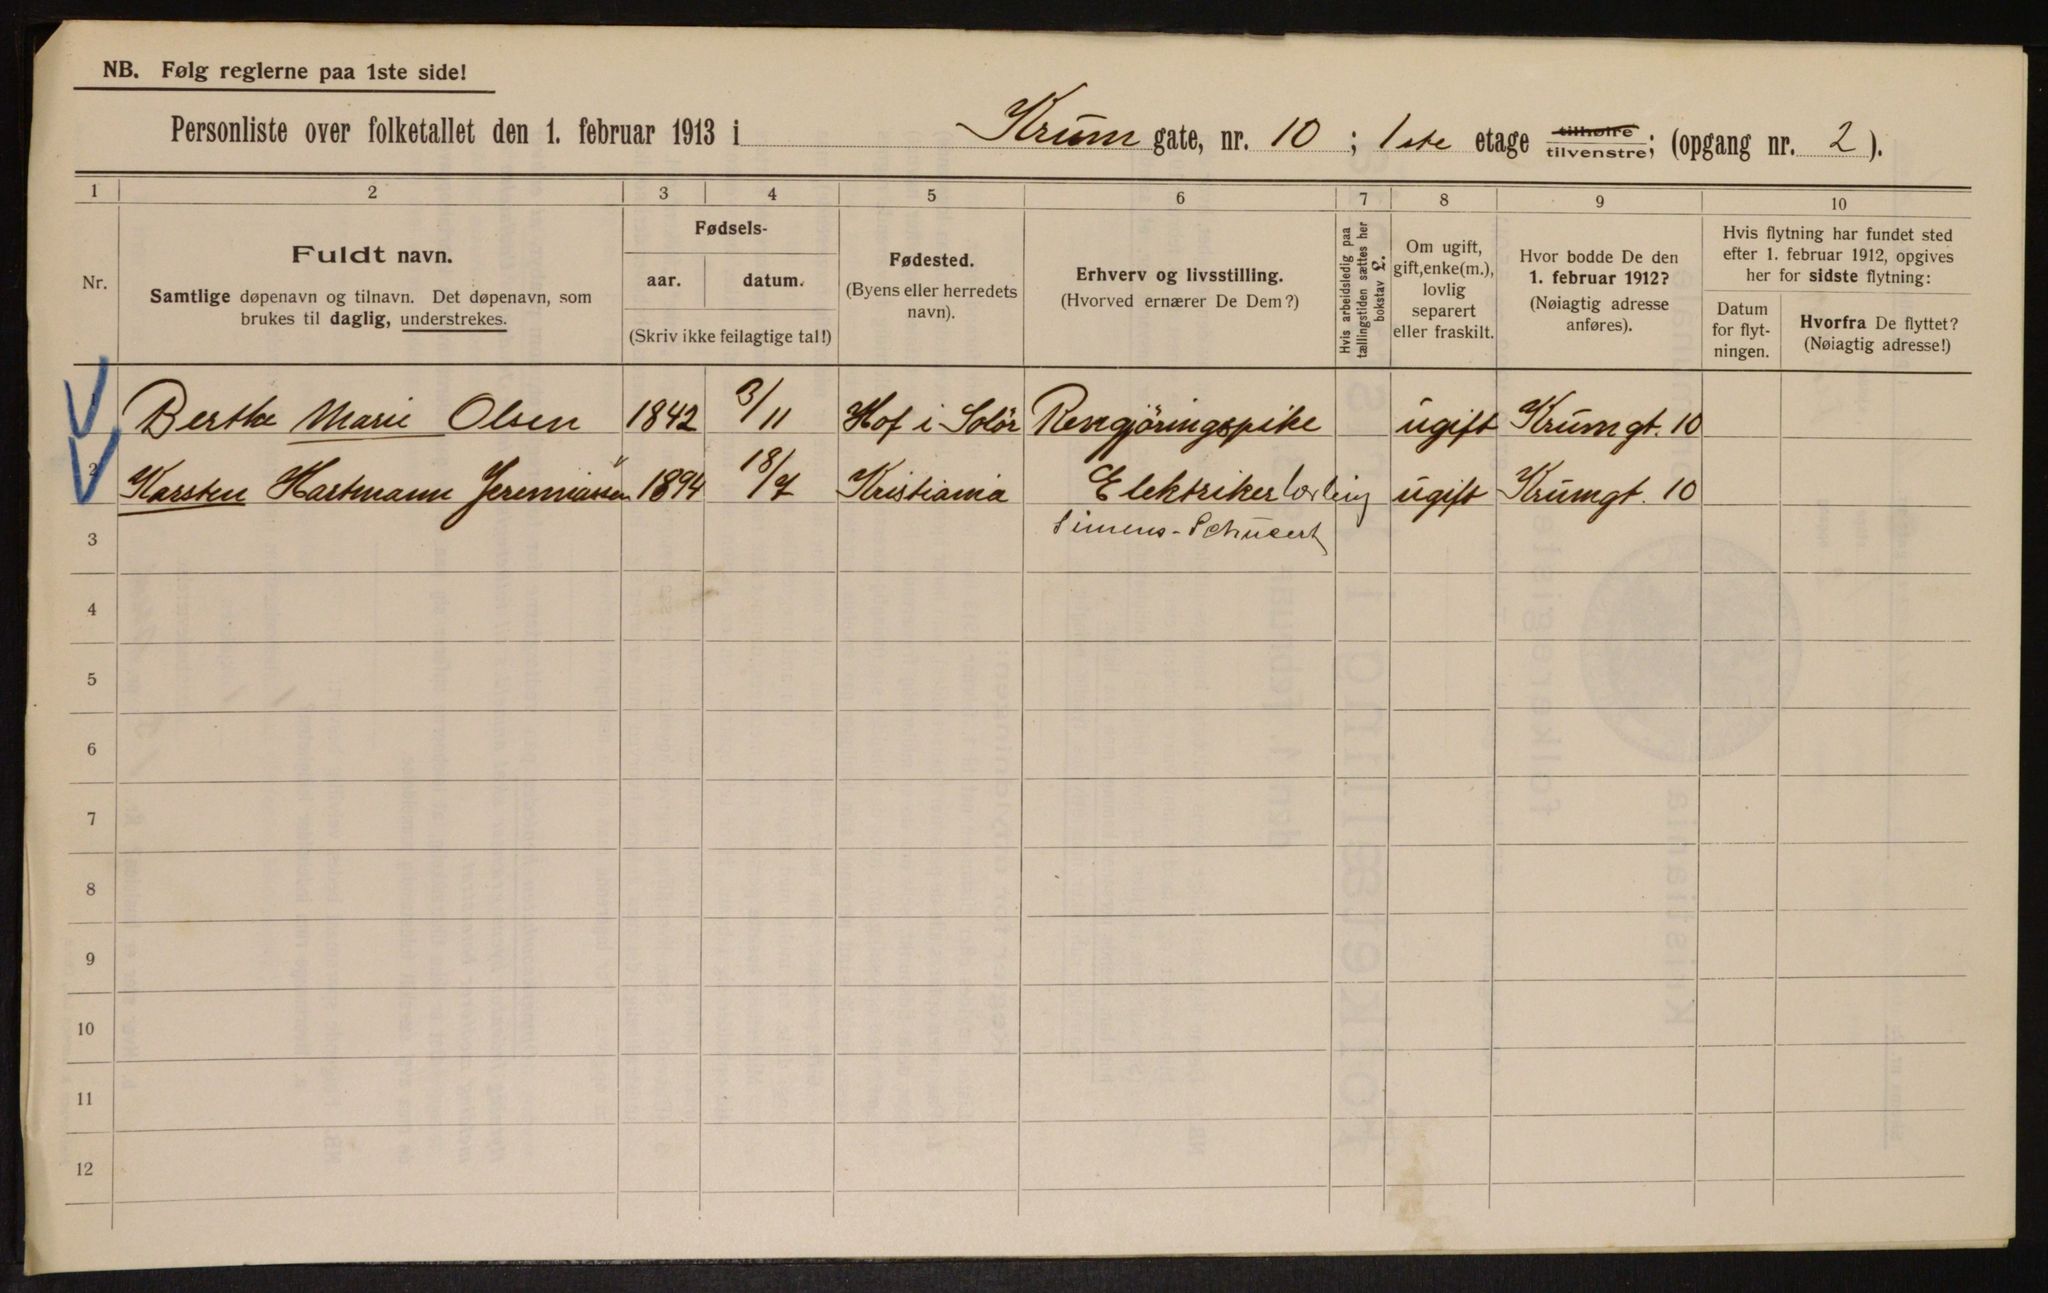 NB. Følg reglerne paa 1ste side!
Personliste over folketallet den 1. februar 1913 i Krum gate, nr. 10 ; 1ste etage tilhøire tilvenstre; (opgang nr. 2 ).
1 2 3 4 5 6 7 8 9 10
Nr.
Fuldt navn.
Samtlige døpenavn og tilnavn. Det døpenavn, som
brukes til daglig, understrekes.
Fødsels-
aar. datum.
(Skriv ikke feilagtige tal!)
Fødested.
(Byens eller herredets
navn).
Erhverv og livsstilling.
(Hvorved ernærer De Dem?)
Hvis arbeidsledig paa
tællingstiden sættes her
bokstav L.
Om ugift,
gift, enke(m.),
lovlig
separert
eller fraskilt.
Hvor bodde De den
1. februar 1912?
(Nøiagtig adresse
anføres).
Hvis flytning har fundet sted
efter 1. februar 1912, opgives
her for sidste flytning:
Datum
for flyt-
ningen.
Hvorfra De flyttet?
(Nøiagtig adresse!)
Berthe Marie Olsen 1842 3/11 Hof i Solör Rengjöringspike ugift Krumgt. 10
2 Karsten Hartmann Jeremiassen 1894 18/7 Kristiania Elektrikerlærling ugift Krumgt. 10
Simens-Schucert
3
4
5
6
7
8
9
10
11
12